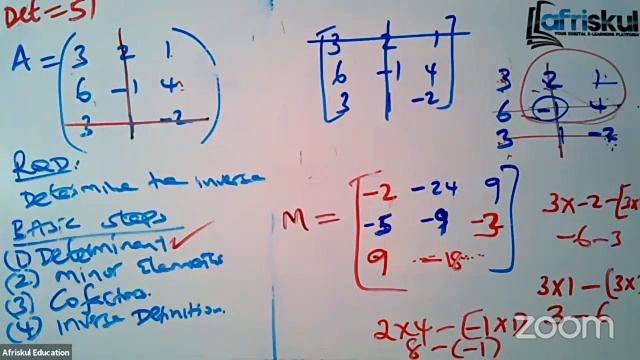 Det = 51
A = (3 2 1
6 -1 4
3 -2)
RQD:
Determine the inverse
Basic steps
(1) Determinant ✓
(2) minor Elements
(3) Cofactors.
(4) Inverse Definition.
[3 2 1
6 -1 4
3 1 -2]
afriskul
YOUR DIGITAL E-LEARNING PLATFORM
3 2 1
6 -1 4
3 1 -2
M = [-2 -24 9
-5 -9 -3
9 -18]
3x-2-[3x
-6-3
3x1-(3x
3-6
2x4-(-1x1)
8-(-1)
zoom
Afriskul Education